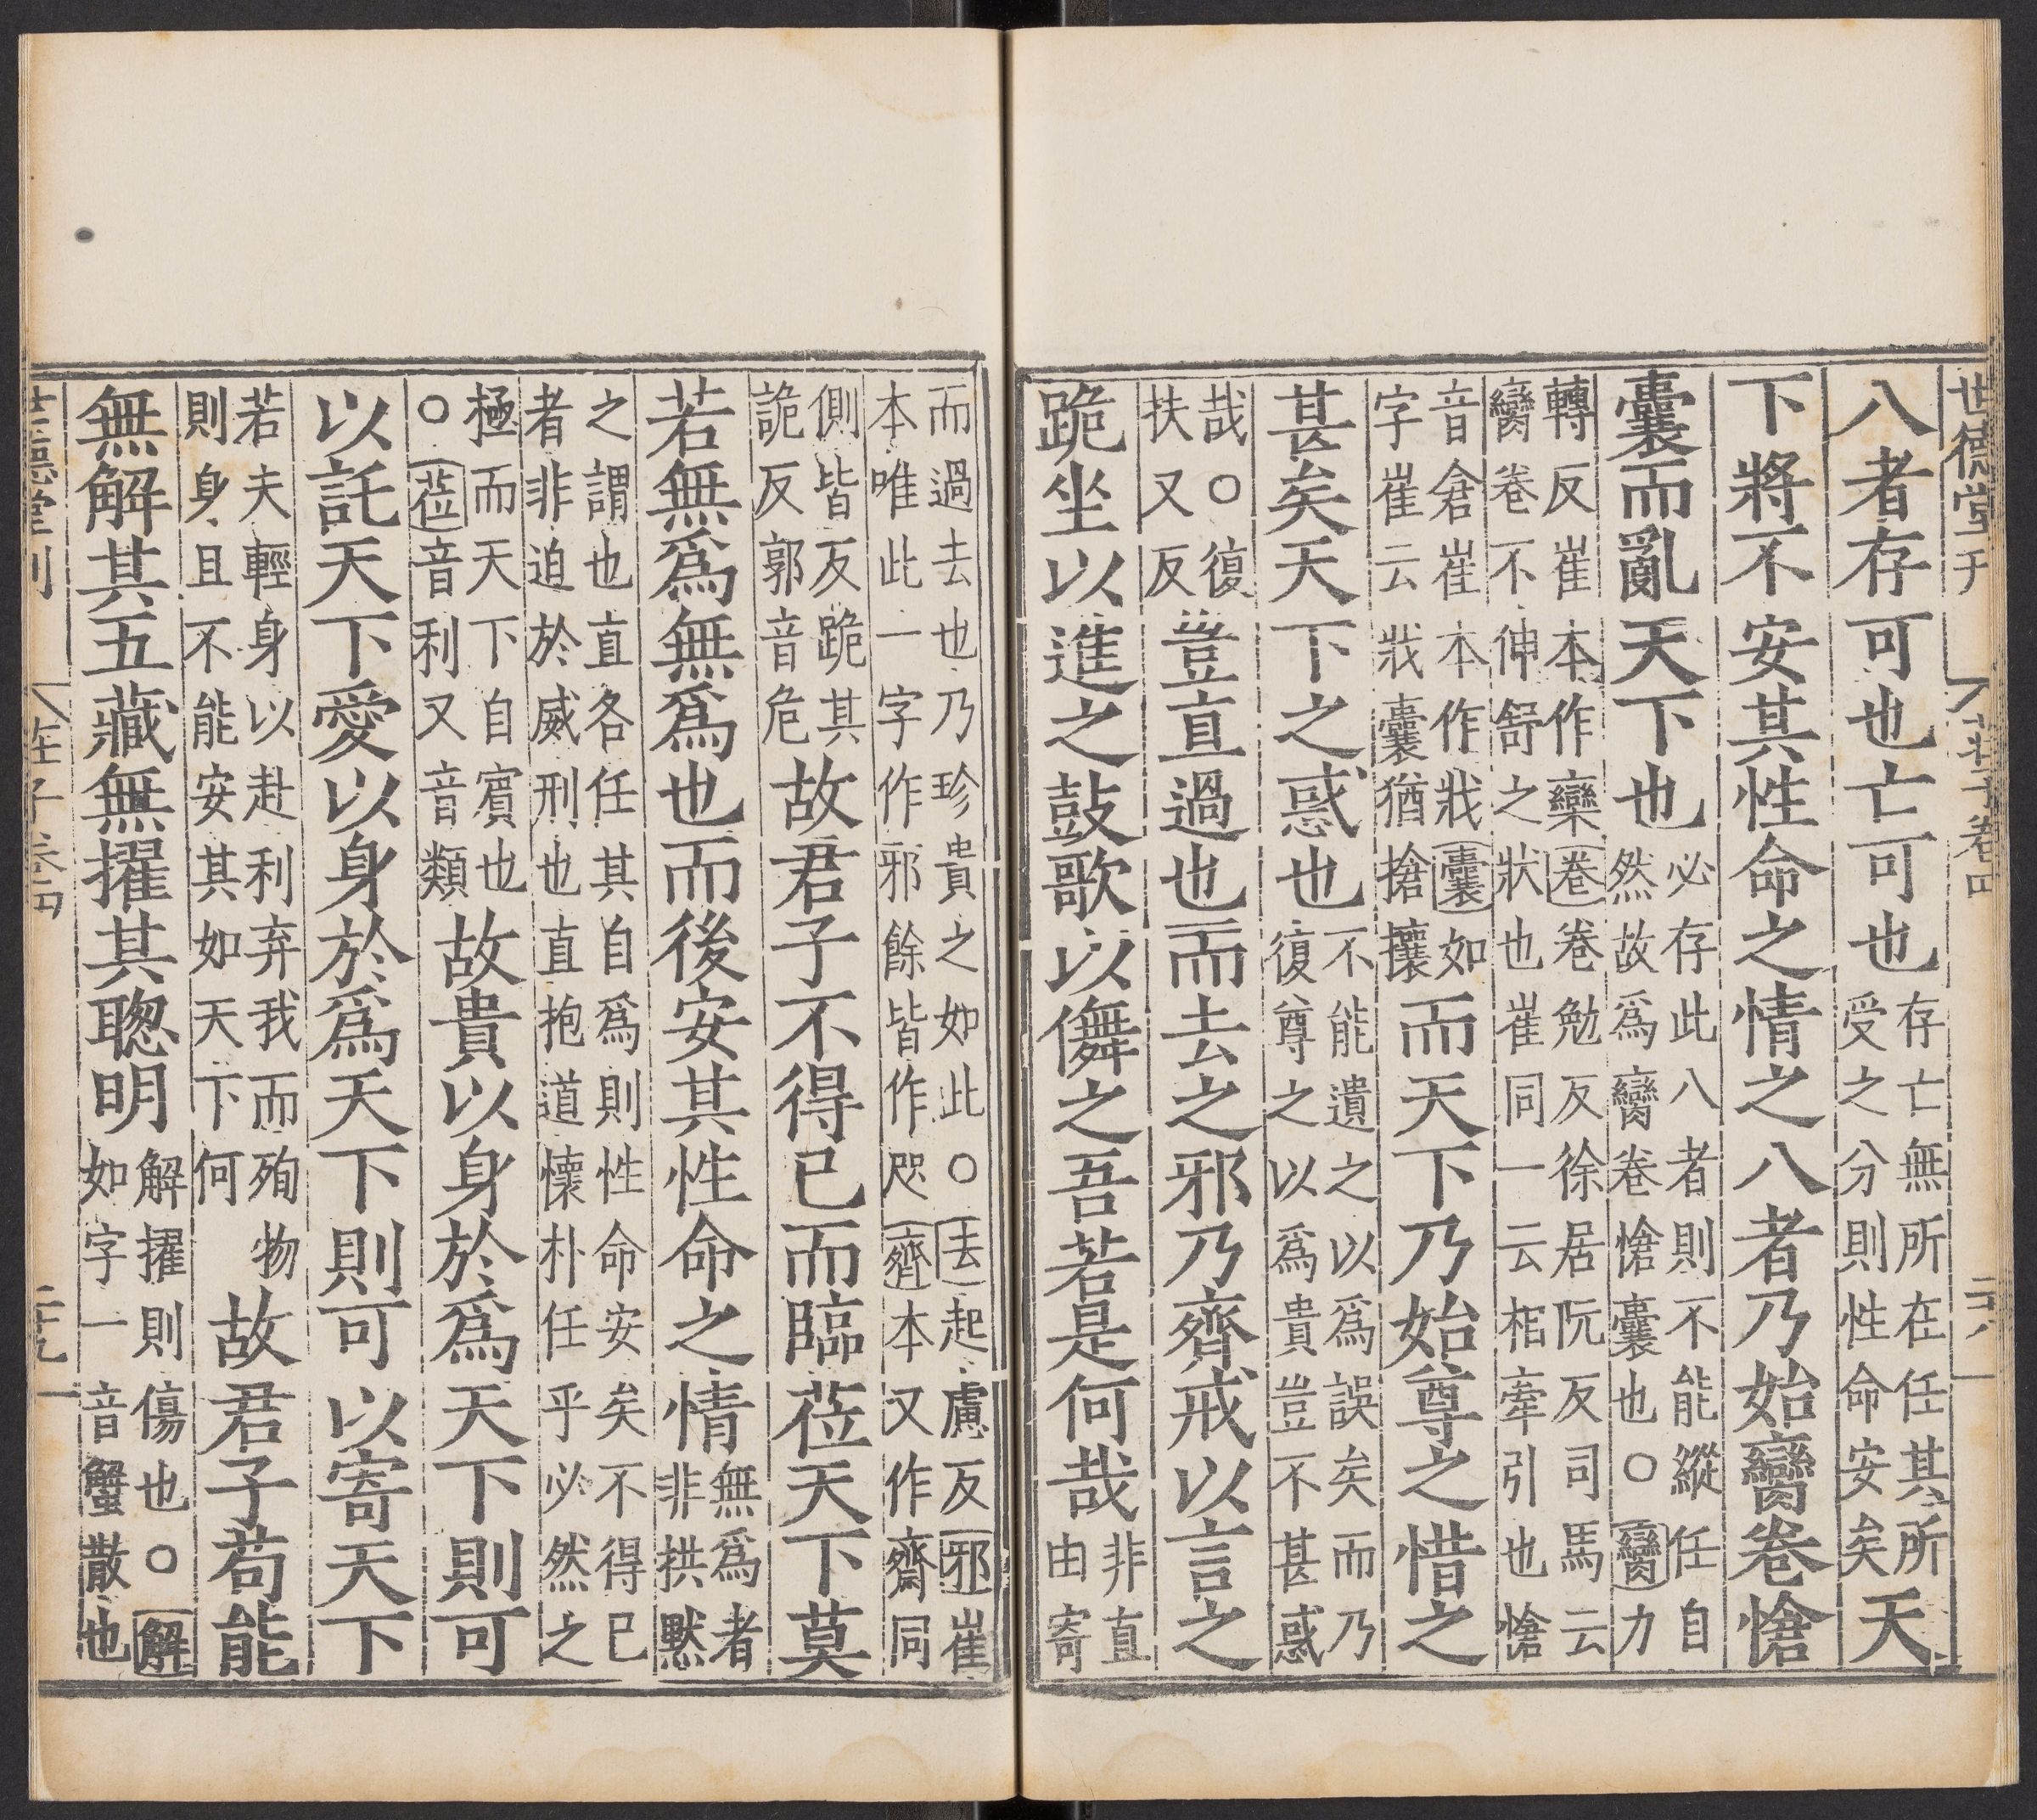 世德堂刊 莊子卷四 二十八
八者存可也亡可也存亡無所在任其所受之分則性命安矣天
下將不安其性命之情之八者乃始臠卷愴
囊而亂天下也必存此八者則不能縱任自然故爲臠卷愴囊也○臠力
轉反崔本作欒卷卷勉反徐居阮反司馬云臠卷不伸舒之狀也崔同一云相牽引也愴
音倉崔本作戕囊如字崔云戕囊猶搶攘而天下乃始尊之惜之
甚矣天下之惑也不能遺之以爲誤矣而乃復尊之以爲貴豈不甚惑
哉○復扶又反豈直過也而去之邪乃齊戒以言之
跪坐以進之鼓歌以儛之吾若是何哉非直由寄
而過去也乃珍貴之如此○去起慮反邪崔本唯此一字作邪餘皆作咫齊本又作齋同
側皆反跪其詭反郭音危故君子不得已而臨莅天下莫
若無爲無爲也而後安其性命之情無爲者非拱默
之謂也直各任其自爲則性命安矣不得已者非迫於威刑也直抱道懷朴任乎必然之
極而天下自賓也○莅音利又音類故貴以身於爲天下則可
以託天下愛以身於爲天下則可以寄天下
若夫輕身以赴利弃我而殉物則身且不能安其如天下何故君子苟能
無解其五藏無擢其聰明解擢則傷也○解如字一音蟹散也
世德堂刊 莊子卷四 二十九